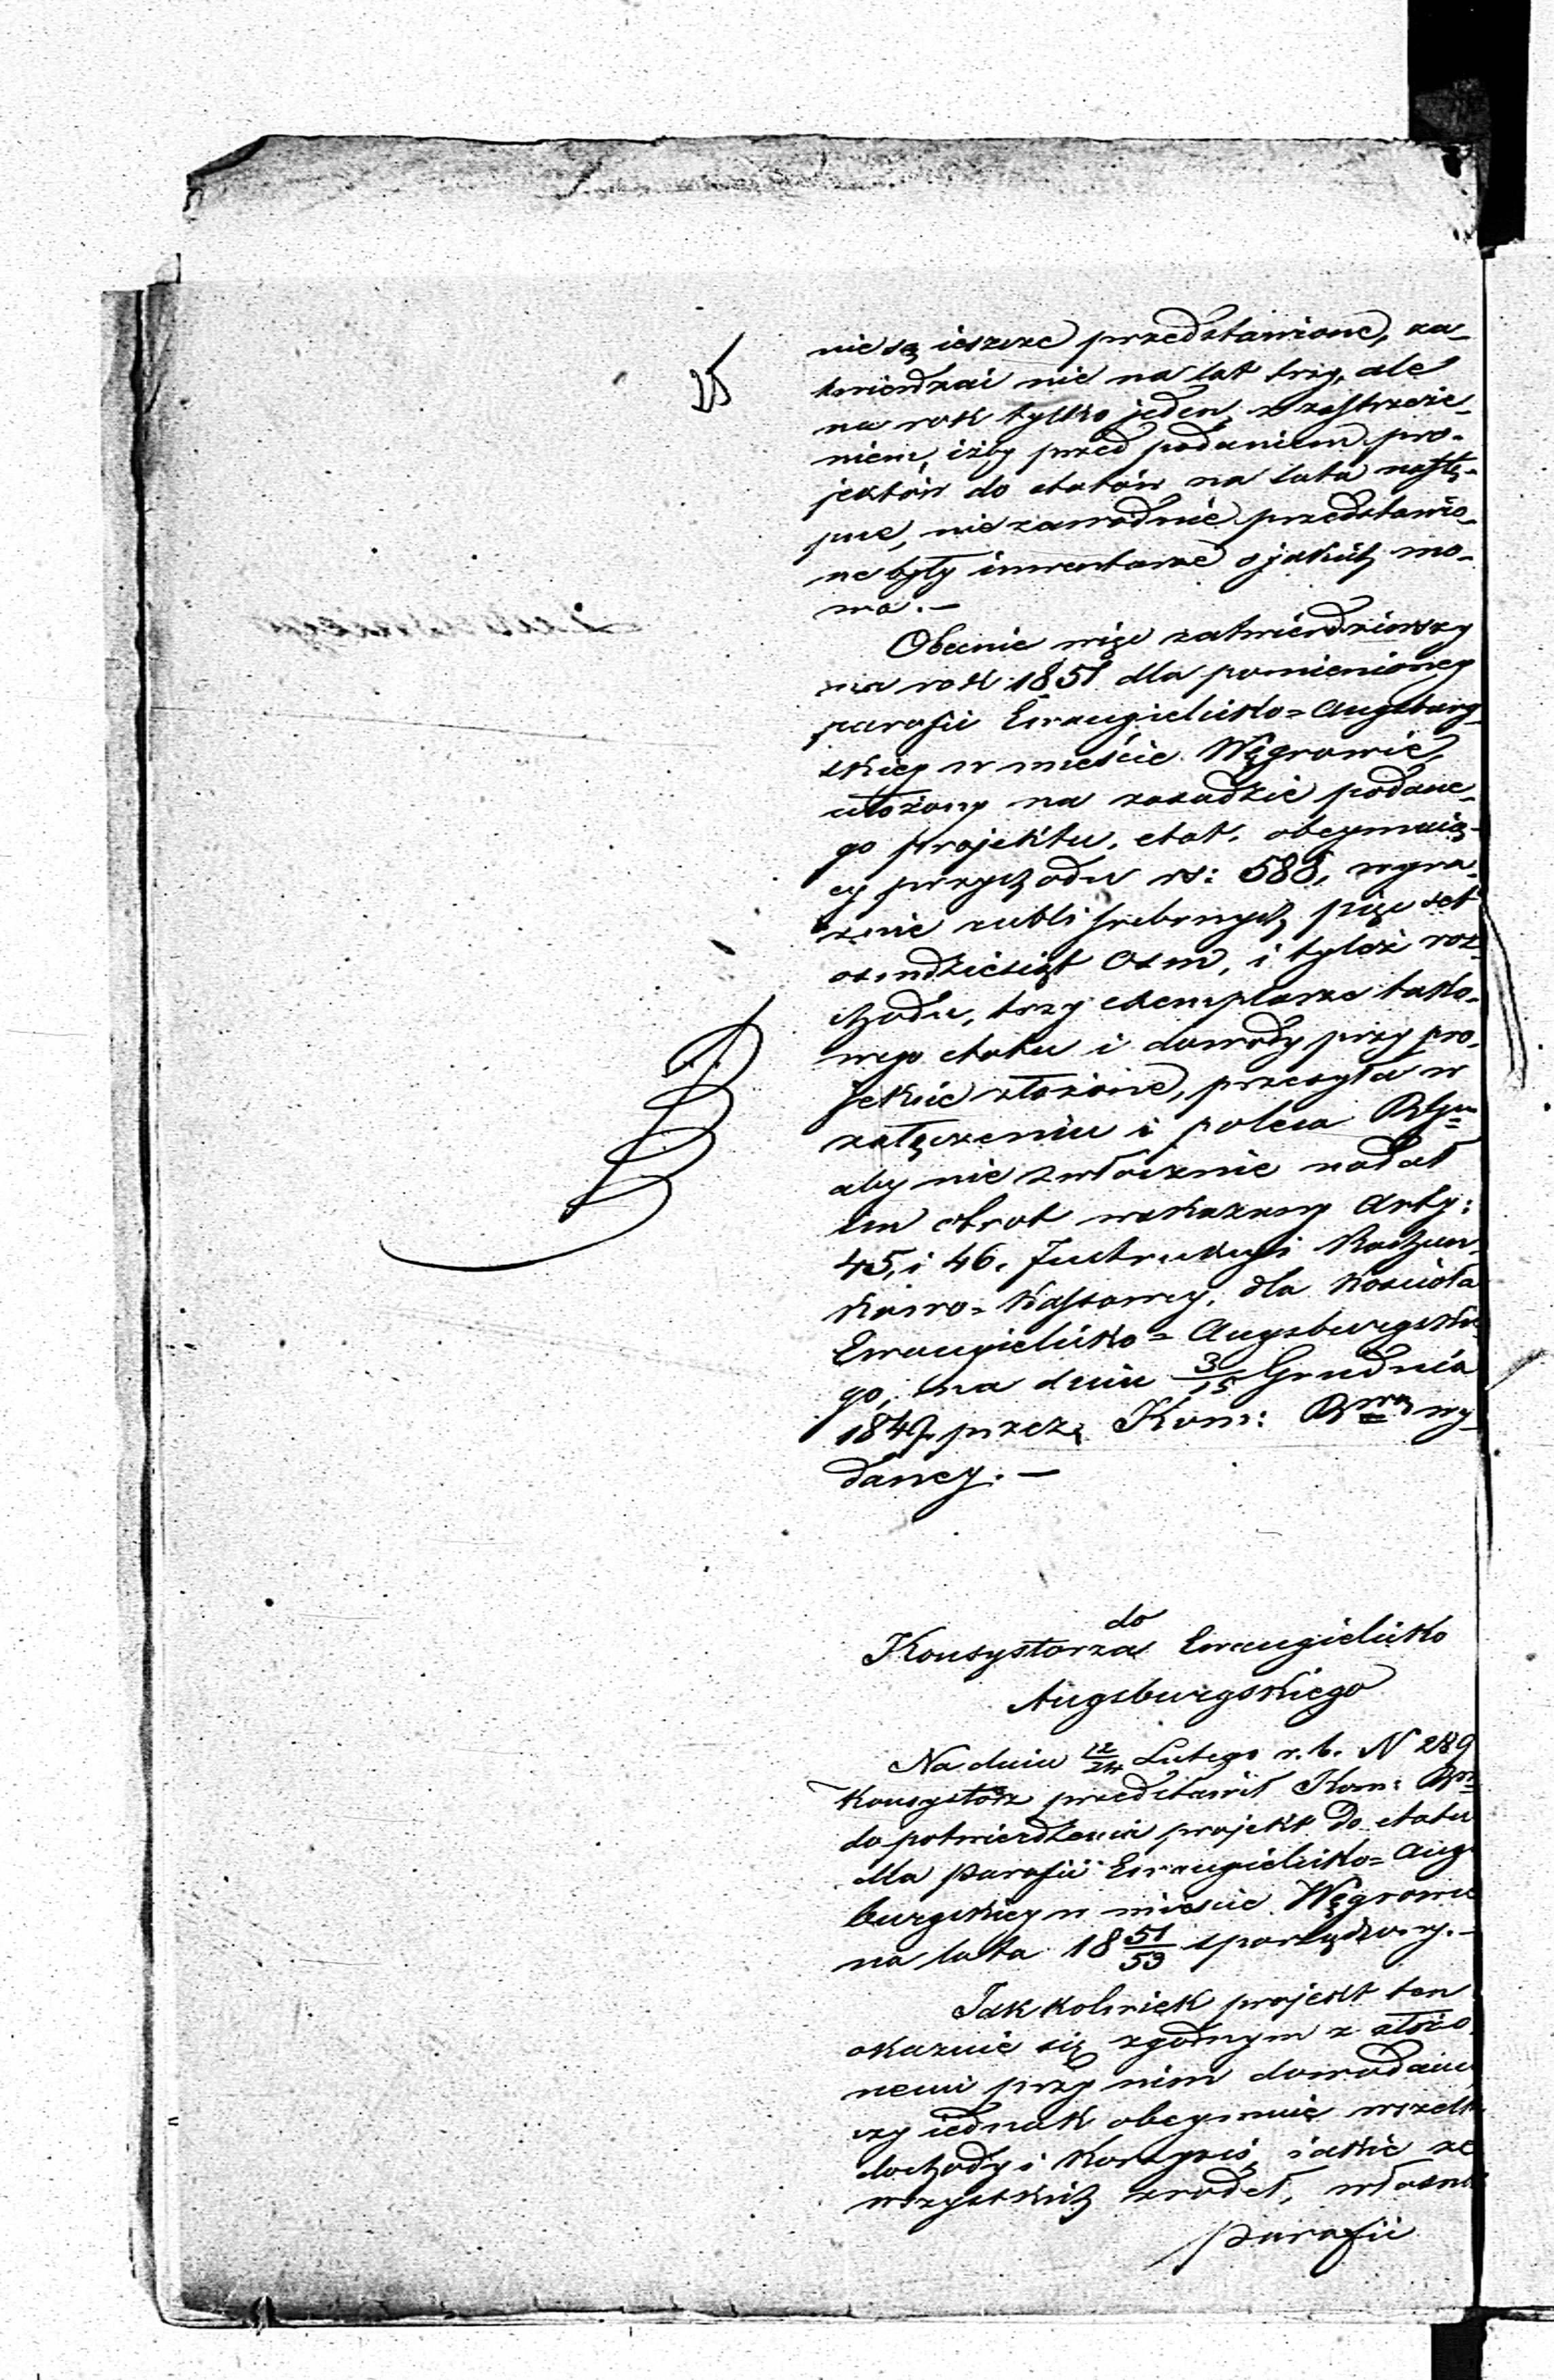 25
nie są ieszcze przedstawione, za-
twierdzać nie na lat trzy, ale
na rok tylko jeden, z zastrzeże-
niem, iżby przed podaniem pro-
jektów do etatów na lata nastę-
pne, niezawodnie przedstawio-
ne były inwentarze o jakich mo-
wa. —
Obecnie więc zatwierdziwszy
na rok 1851 dla pomienioney
parafii Ewangielicko = Augsburg-
skiey w mieście Węgrowie,
ułożony na zasadzie podane-
go projektu, etat, obeymuią-
cy przychodu rs: 588, wyra-
źnie rubli srebrnych pięćset
ośmdziesiąt ośm, i tyleż roz-
chodu, trzy exemplarze tako-
wego etatu i dowody przy pro-
jekcie złożone, przesyła w
załączeniu i poleca
aby niezwłocznie nadał
im obrot wskazany Arty:
45, i 46. Instrukcyi Rachun-
kowo = Kassowey, dla Kościoła
Ewangielicko = Augsburgskie-
go, na dniu 3/15 Grudnia
1849 przez Kom: Rzwą wy-
daney. —
do
Konsystorza Ewangielicko
Augsburgskiego
Na dniu 12/24 Lutego r. b. N 289
Konsystorz przedstawił Kom:
do potwierdzenia projekt do etatu
dla Parafii Ewangielicko = Augs-
burgskiey w mieście Węgrowie
na lata 18 51/53 sporządzony. —
Jakkolwiek projekt ten
okazuie się zgodnym z złożo-
nemi przy nim dowodami
czy iednak obeymuie wszelkie
dochody i korzyści, iakie ze
wszystkich zrodeł, własne
Parafii